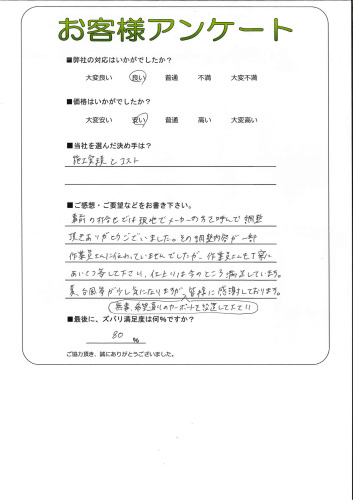 お客様アンケート
■弊社の対応はいかがでしたか？
大変良い 良い 普通 不満 大変不満
■価格はいかがでしたか？
大変安い 安い 普通 高い 大変高い
■当社を選んだ決め手は？
施工実績とコスト
■ご感想・ご要望などをお書き下さい。
事前の打合せでは現地でメーカーの方も呼んで調整
頂きありがとうございました。その調整内容が一部
作業員さんに伝わっていませんでしたが、作業員さんも丁寧に
して下さり、仕上りは今のところ満足しています。
夏、台風等が少し気になりますが、皆様に感謝しております。
無事、希望通りのカーポートを設置して
■最後に、ズバリ満足度は何％ですか？
80 ％
ご協力頂き、誠にありがとうございました。